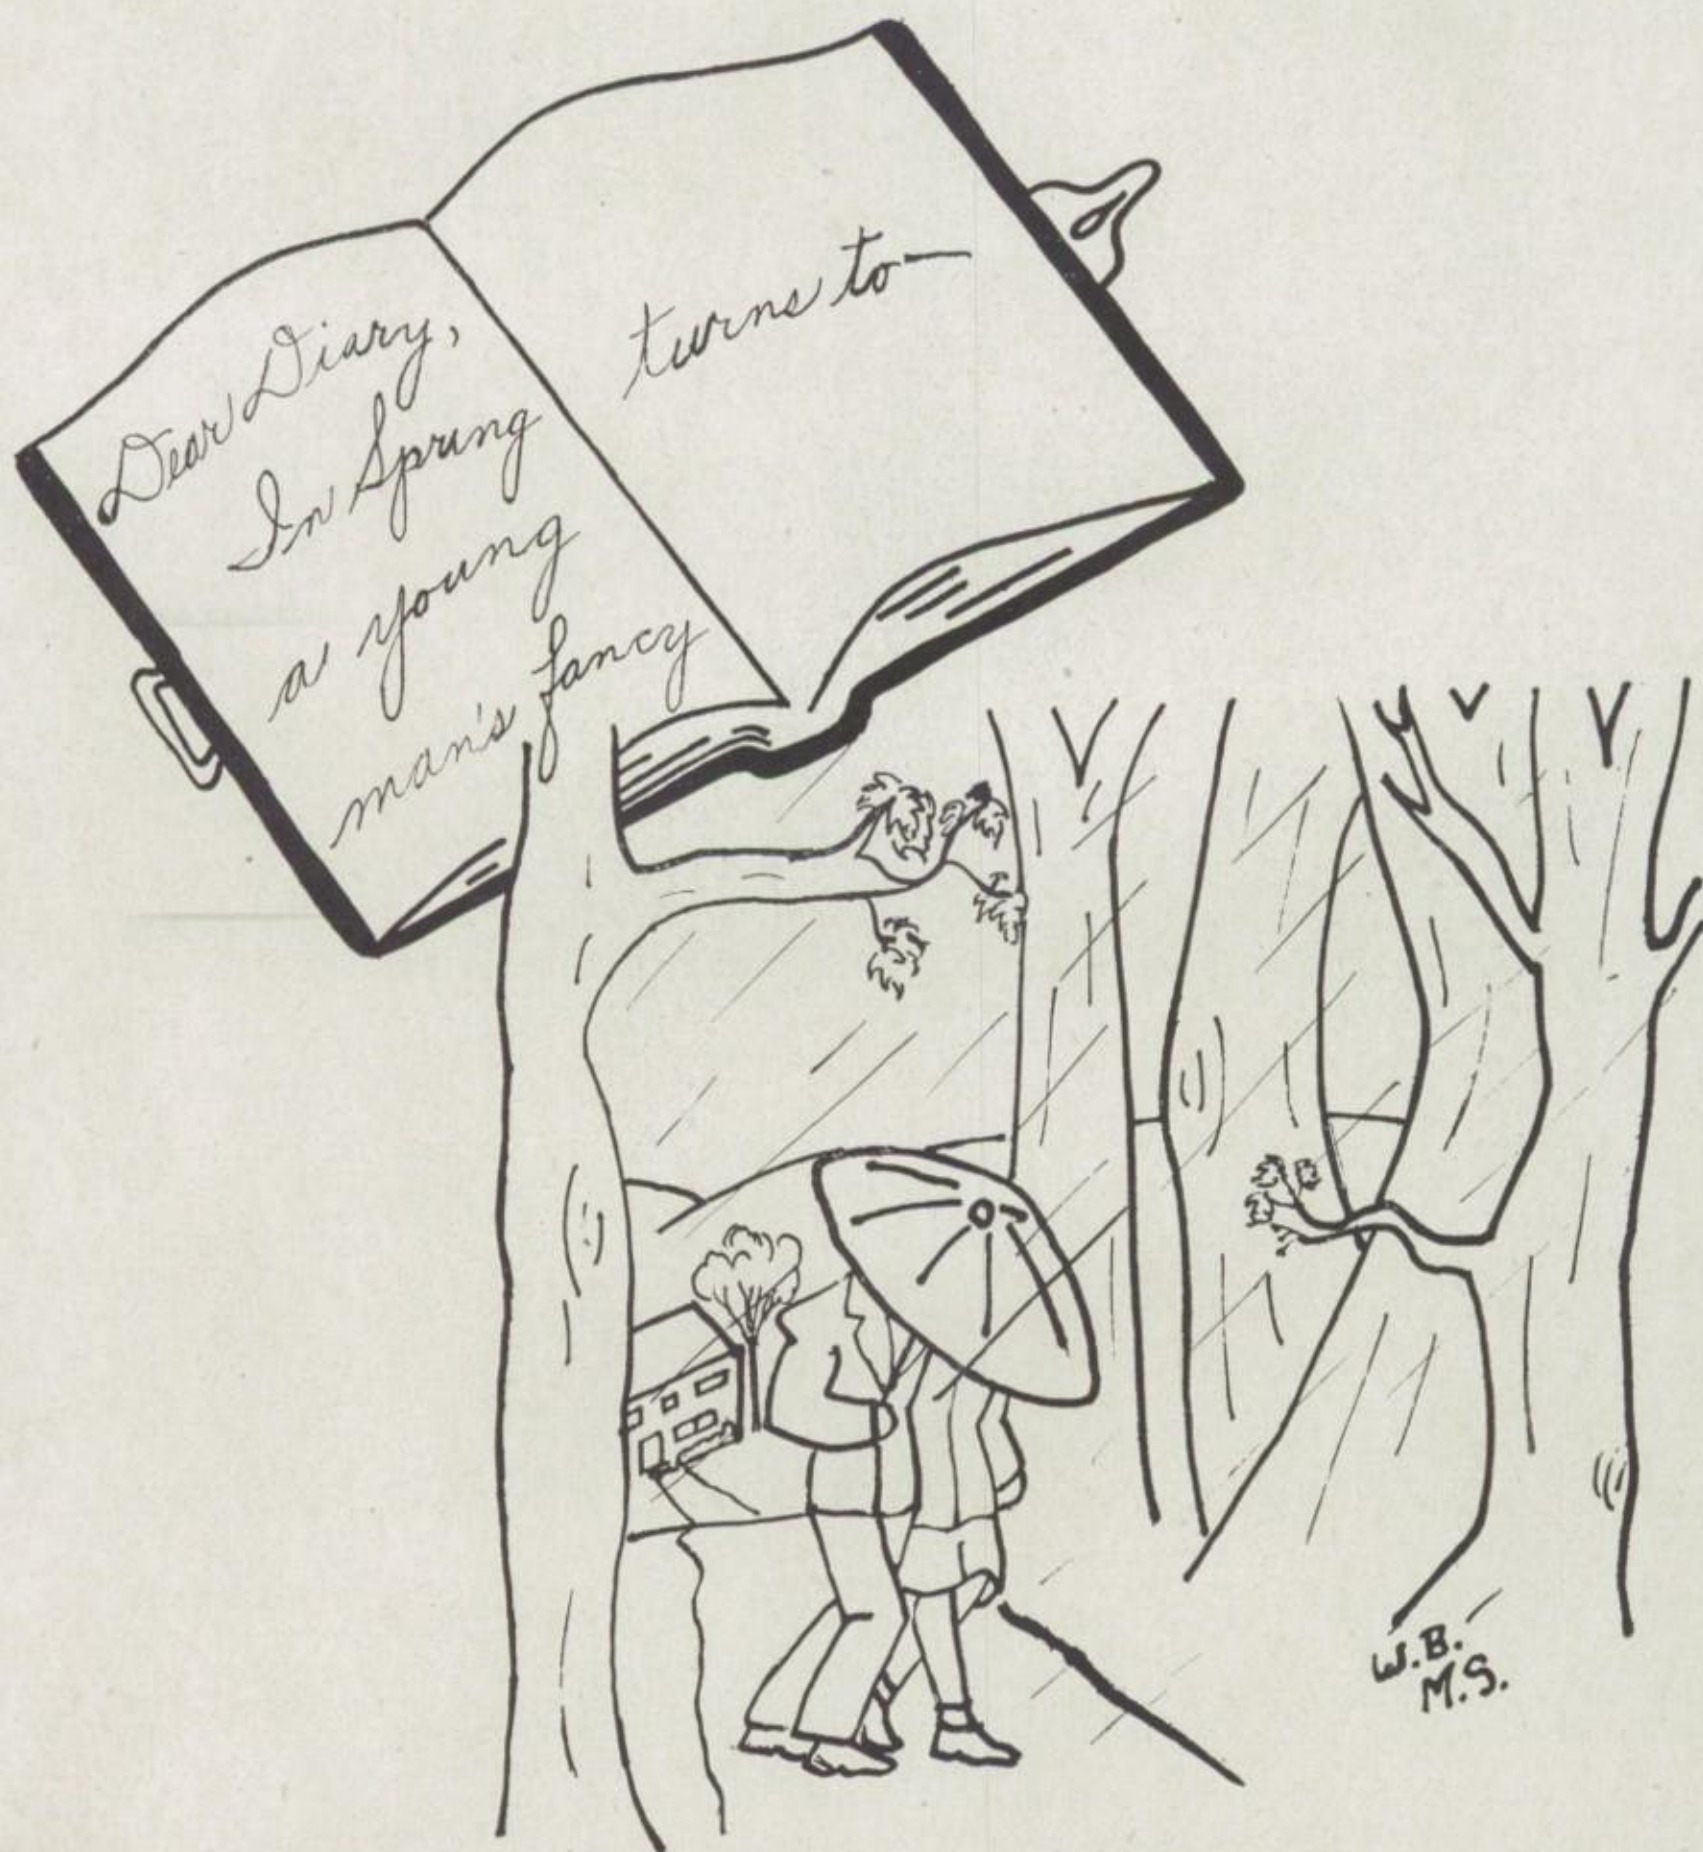 Dear Diary,
In Spring
a young
man's fancy
turns to—
W.B.
M.S.